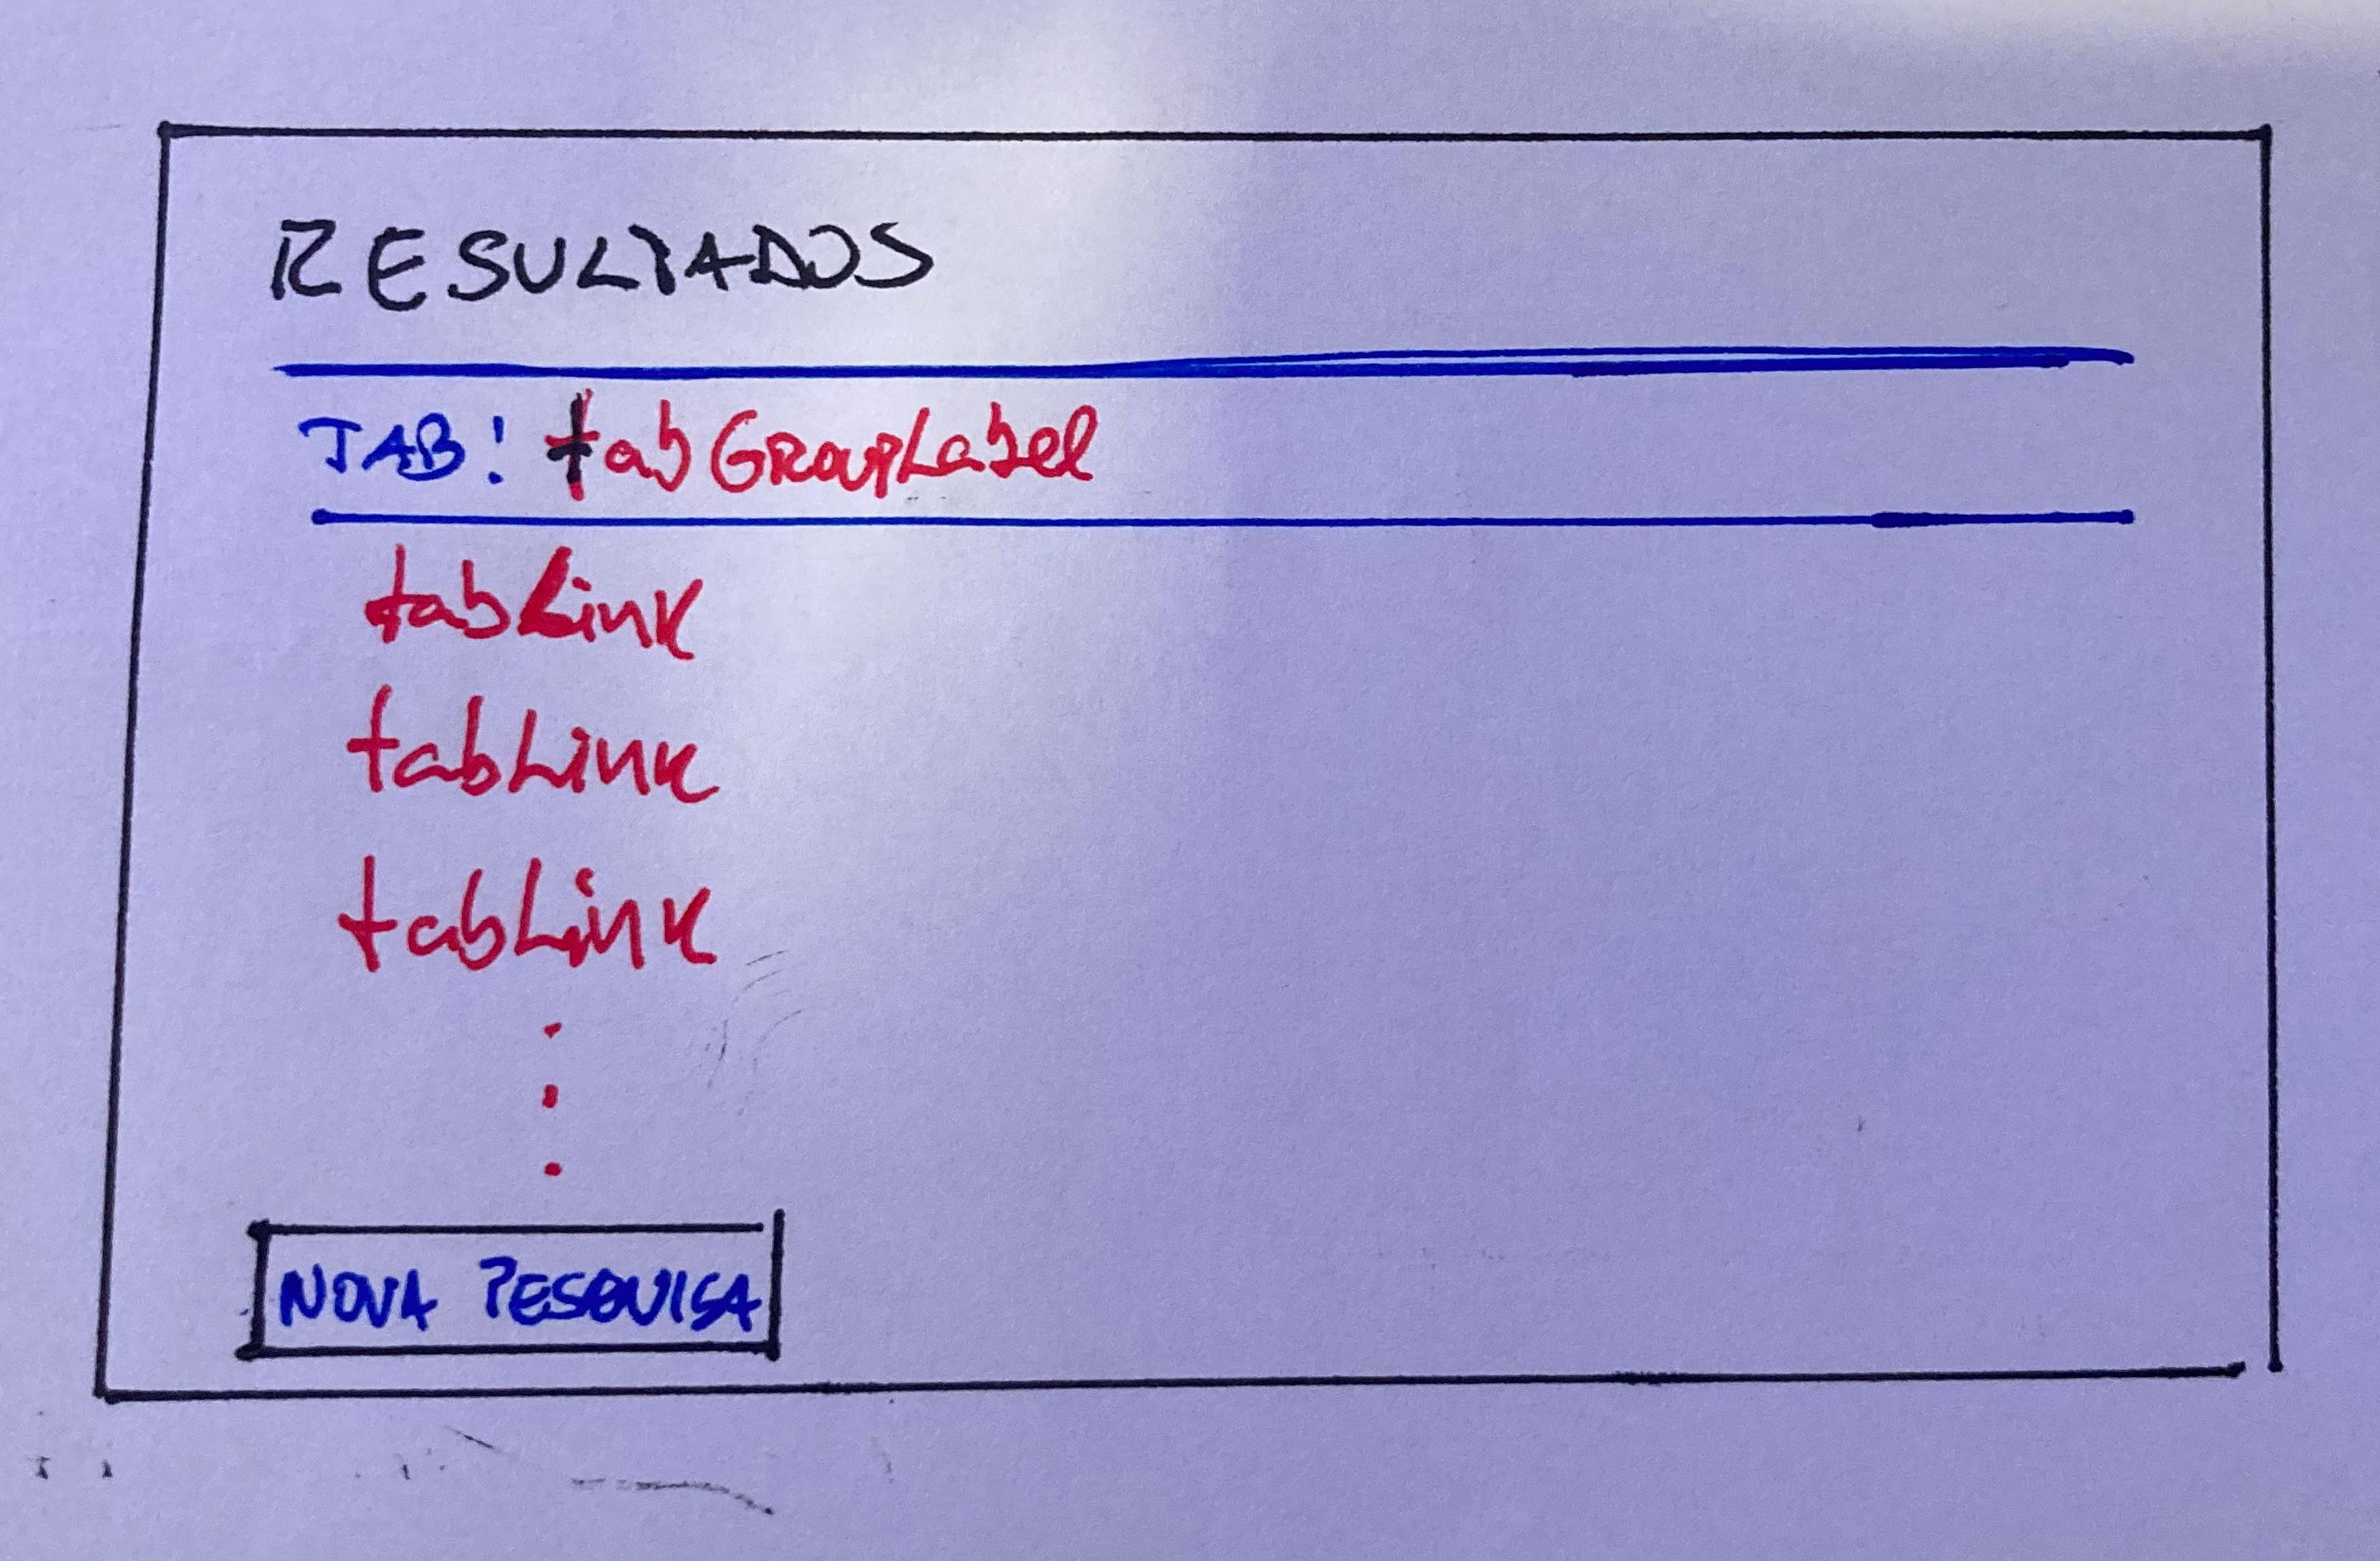 RESULTADOS
TAB: tabGroupLabel
tabLink
tabLink
tabLink
NOVA PESQUISA